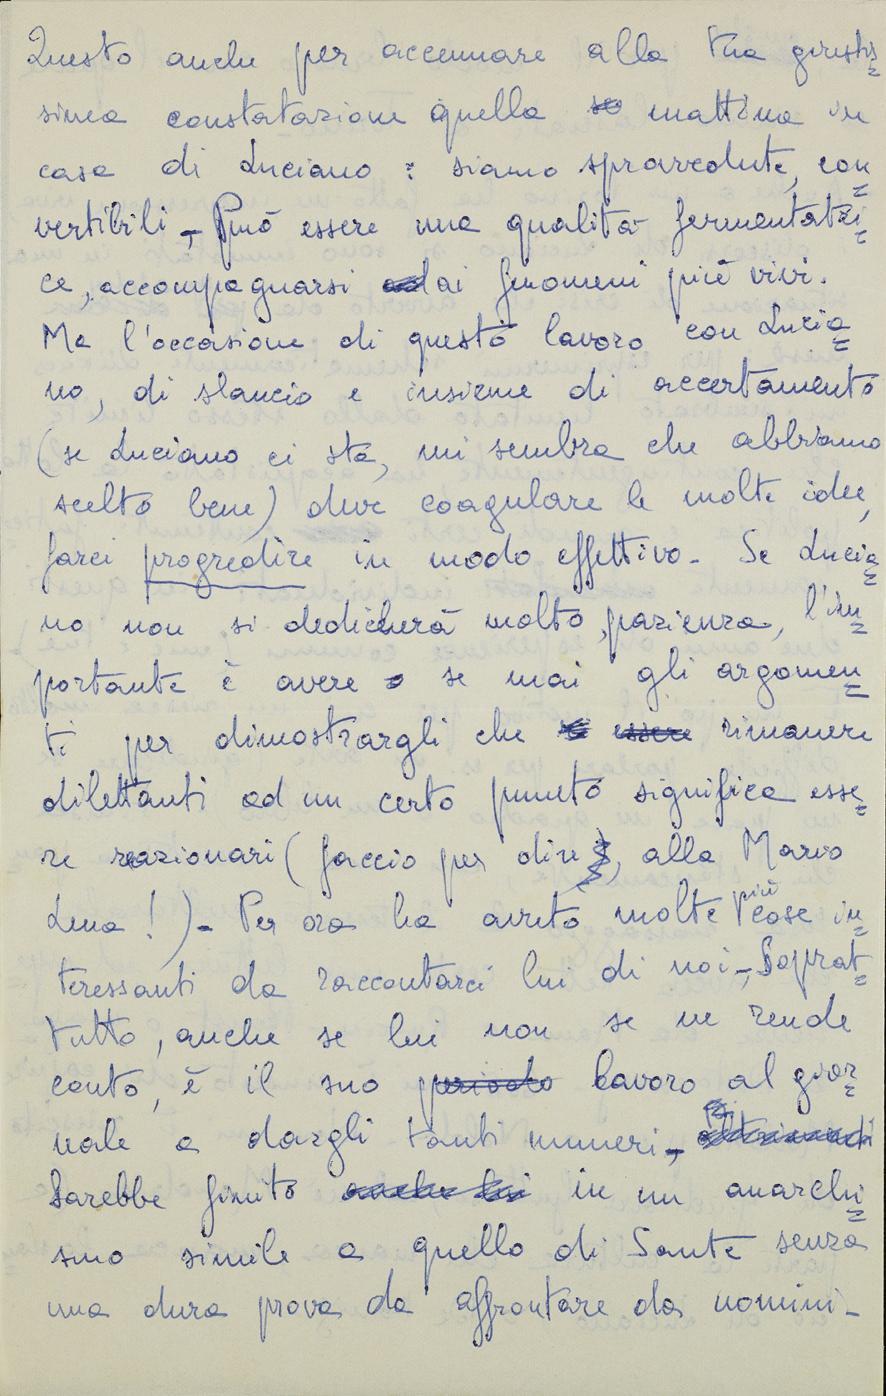 Questo anche per accennare alla tua giustis=
sima constatazione quella mattina in
casa di Luciano : siamo sprovvedute, con=
vertibili - Può essere una qualità fermentatri=
ce, accompagnarsi ai fenomeni più vivi.
Ma l'occasione di questo lavoro con Lucia=
no, di slancio e insieme di accertamento
(se Luciano ci sta, mi sembra che abbiamo
scelto bene) deve coagulare le molte idee,
farci progredire in modo effettivo - Se Lucia=
no non si dedicherà molto, pazienza, l'im=
portante è avere se mai gli argomen=
ti per dimostrargli che rimanere
dilettanti ad un certo punto significa esse=
re reazionari ( faccio per dire, alla Mario
Luna ! ) - Per ora ha avuto molte più cose in=
teressanti da raccontarci lui di noi -, Soprat=
tutto, anche se lui non se ne rende
conto, è il suo lavoro al gior=
nale a dargli tanti numeri -
Sarebbe finito in un anarchi=
smo simile a quello di Sante senza
una dura prova da affrontare da uomini -